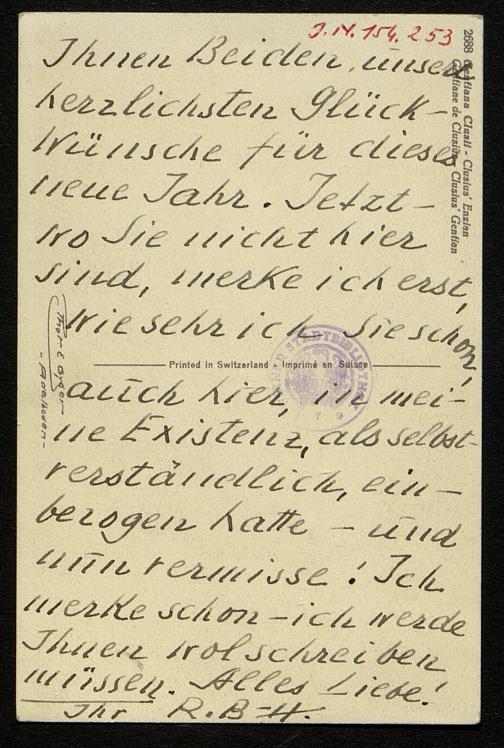 J.N. 154.253
2688 Gentiana Clusii - Clusius' Enzian
Gentiane de Clusius - Clusius' Gentian
Ihnen Beiden, unsere
herzlichsten Glück-
wünsche für dieses
neue Jahr. Jetzt -
wo Sie nicht hier
sind, merke ich erst,
wie sehr ich Sie schon,
Printed in Switzerland - Imprimé en Suisse
auch hier, in mei-
ne Existenz, als selbst-
verständlich, ein-
bezogen hatte - und
nun vermisse! Ich
merke schon - ich werde
Ihnen wol schreiben
müssen. Alles Liebe!
Ihr R.B-H.
- Adelboden -